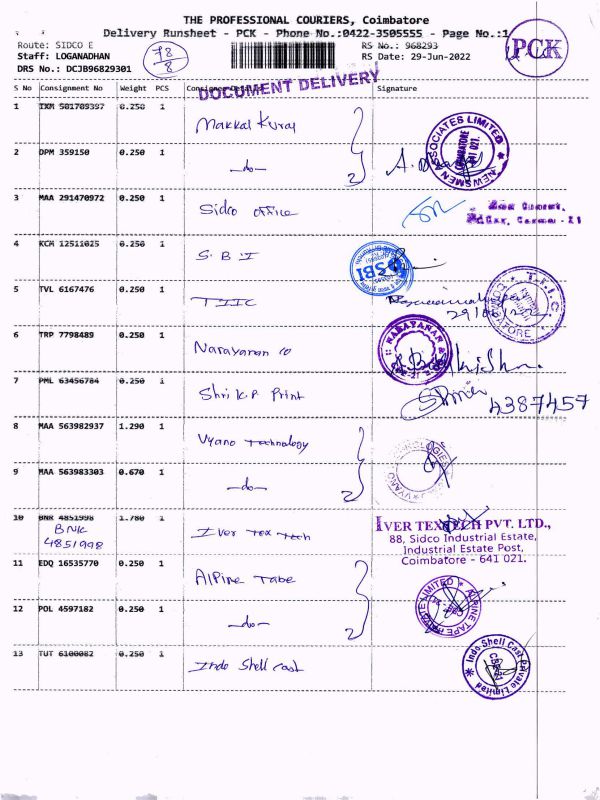 THE PROFESSIONAL COURIERS, Coimbatore
Delivery Runsheet - PCK - Phone No.:0422-3505555 - Page No.:1
Route: SIDCO E
Staff: LOGANADHAN
DRS No.: DCJB96829301
78/8
RS No.: 968293
RS Date: 29-Jun-2022
PCK
DOCUMENT DELIVERY
S No Consignment No Weight PCS Consignee Details Signature
1 TXM 501709397 0.250 1 Makkal Kural
2 DPM 359150 0.250 1 —do— 2
ASSOCIATES LIMITED NEWSMEN COIMBATORE 641 021.
3 MAA 291470972 0.250 1 Sidco office
4 KCM 12511025 0.250 1 S.B.I
SBI
5 TVL 6167476 0.250 1 TIIC
T.I.I.C
6 TRP 7798489 0.250 1 Narayanan co
NARAYANAN &
7 PML 63456784 0.250 1 Shri K.P Print
4387457
8 MAA 563982937 1.290 1 Vyano Technology
9 MAA 563983303 0.670 1 —do— 2
10 BNR 4851998 1.780 1 Iver Tex Tech
BNK
4851998
IVER TEXTECH PVT. LTD.,
88, Sidco Industrial Estate,
Industrial Estate Post,
Coimbatore - 641 021.
11 EDQ 16535770 0.250 1 Alpine Tabe
12 POL 4597182 0.250 1 —do— 2
ALPINE TAPE PRIVATE LIMITED
13 TUT 6100082 0.250 1 Indo Shell cast
Indo Shell Cast Private Limited
CBE-21